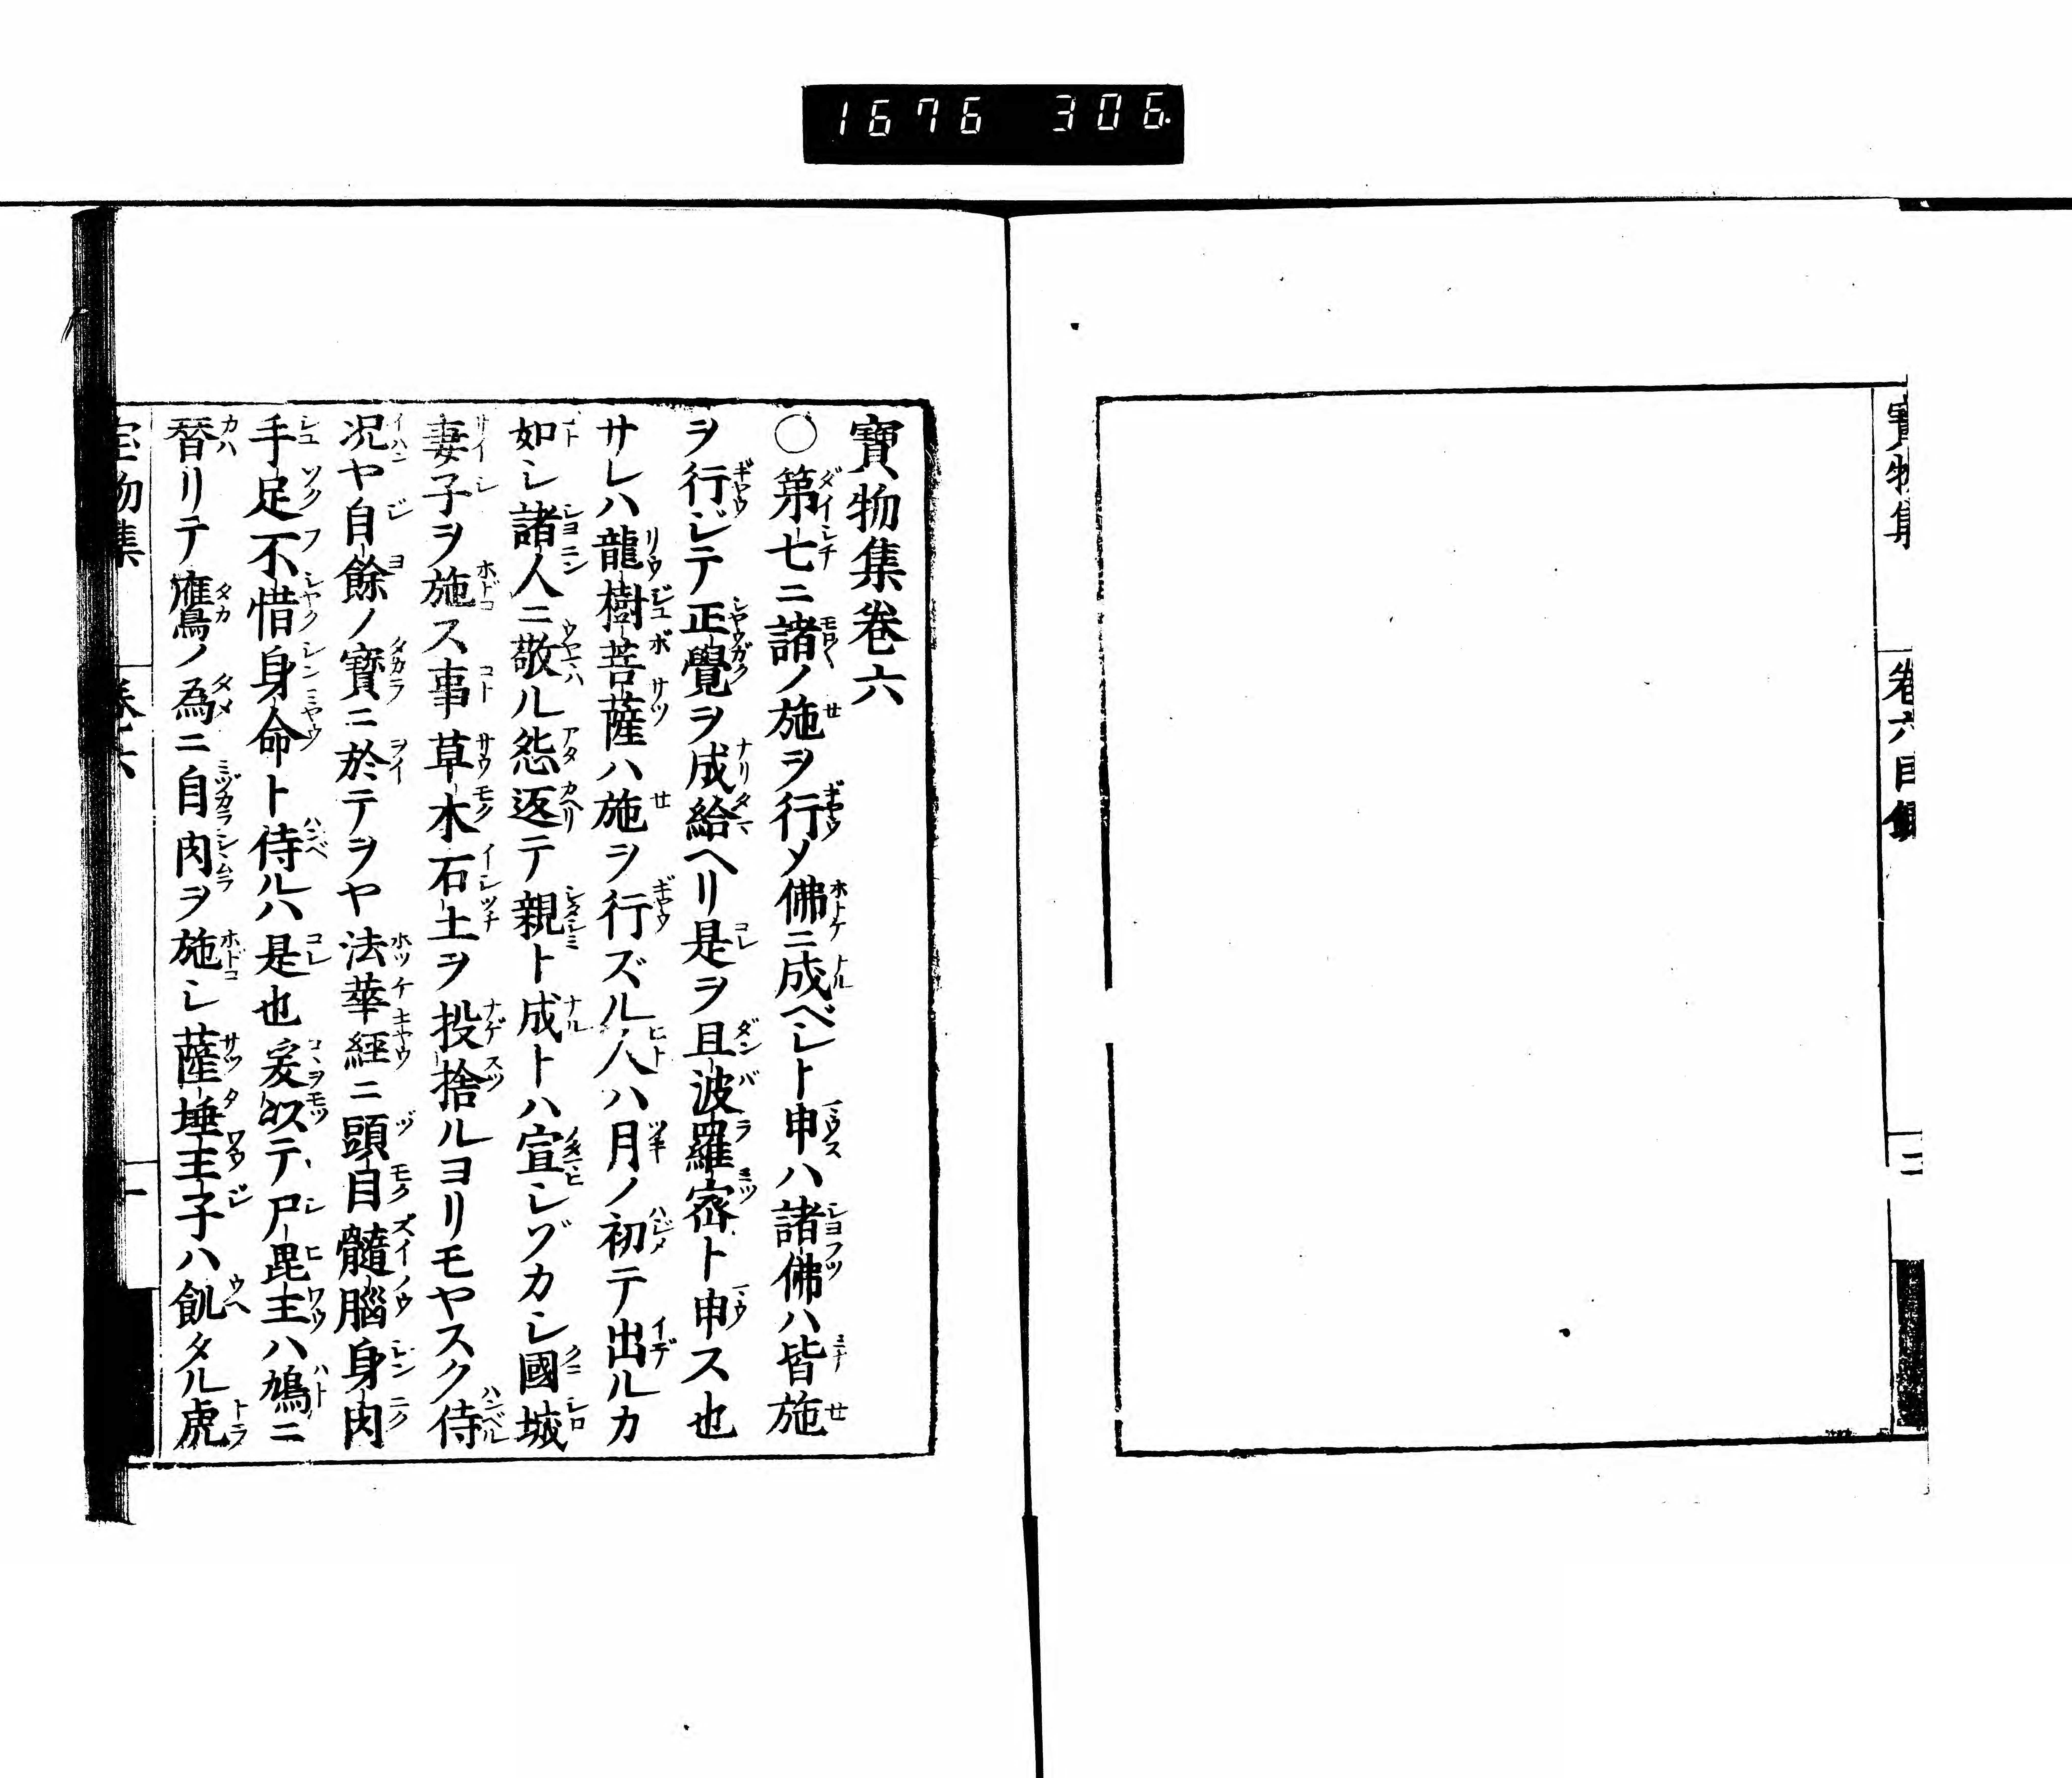 1676 306
寶物集
卷六目錄
二
寶物集卷六
〇第七ニ諸ノ施ヲ行メ佛ニ成ベシト申ハ諸佛ハ皆施
ヲ行ジテ正覺ヲ成給ヘリ是ヲ且波羅宻ト申ス也
サレハ龍樹菩薩ハ施ヲ行ズル人ハ月ノ初テ出ルカ
如シ諸人ニ敬ル怨返テ親ト成トハ宣シゾカシ國城
妻子ヲ施ス事草木石土ヲ投捨ルヨリモヤスク侍
况ヤ自餘ノ寶ニ於テヲヤ法華經ニ頭目髓腦身肉
手足不惜身命ト侍ルハ是也爰以テ尸毘王ハ鳩ニ
替リテ鷹ノ為ニ自肉ヲ施シ薩埵王子ハ飢タル虎
宝物集
卷六
一